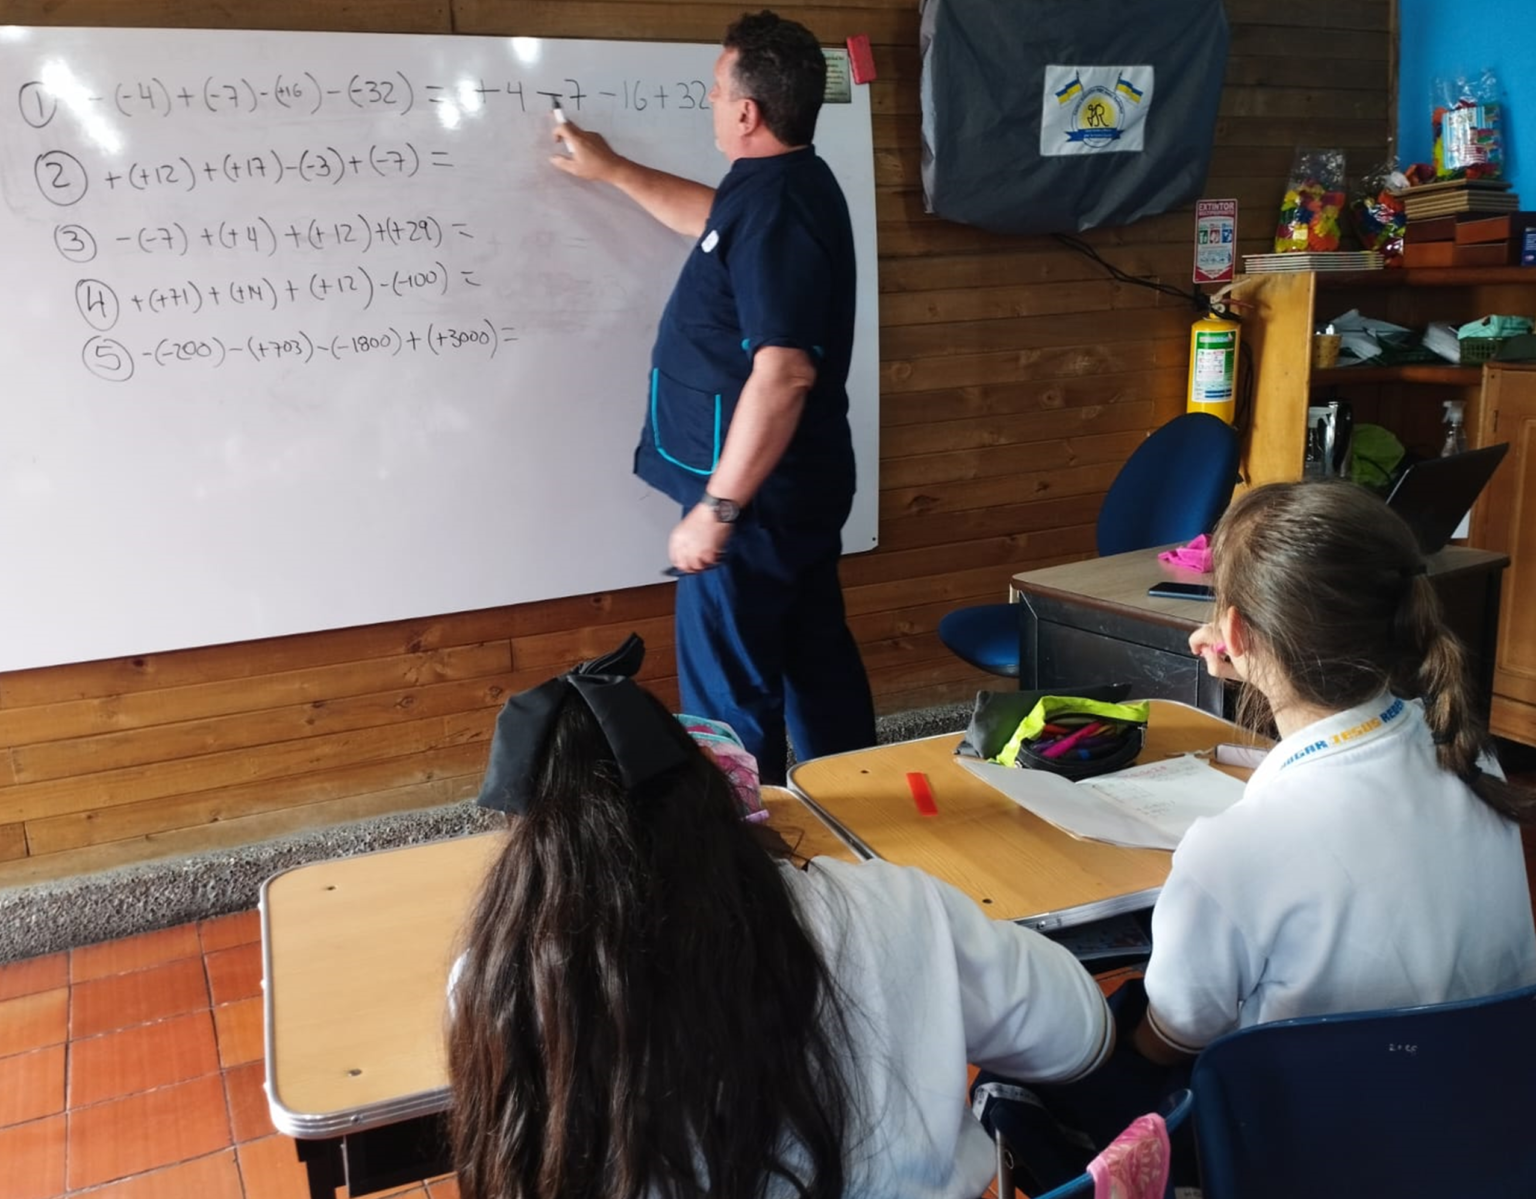 ① -(-4)+(-7)-(+16)-(-32) = +4-7-16+32
② +(+12)+(+17)-(-3)+(-7) =
③ -(-7)+(+4)+(+12)+(+29) =
④ +(+71)+(+14)+(+12)-(-100) =
⑤ -(-200)-(+703)-(-1800)+(+3000) =
EXTINTOR
HOGAR JESUS